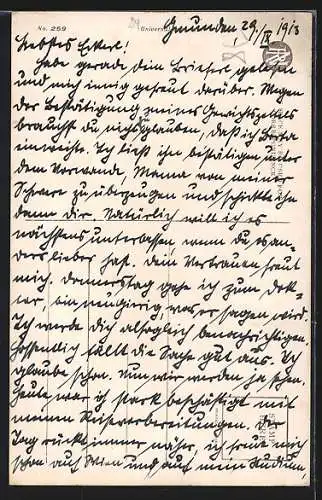 No. 259
Gmunden 29/IV 1913
Liebstes Eckerl!
Habe gerade Dein Brieferl gelesen
und mich innig gefreut darüber. Wegen
der Bestätigung meines Gewichtszettels
brauchst Du nicht glauben, daß ich Berta
einweihte. Ich ließ ihn bestätigen unter
dem Vorwande, Mama von meiner
Schwere zu überzeugen und schickte ihn
dann Dir. Natürlich will ich es
nächstens unterlassen wenn Du es an-
ders lieber hast. Dein Vertrauen freut
mich. Donnerstag gehe ich zum Dok-
tor, bin neugierig, was er sagen wird.
Ich werde Dich alsogleich benachrichtigen.
Hoffentlich fällt die Sache gut aus. Ich
glaube schon. Nun wir werden ja sehen.
Heute war ich stark beschäftigt mit
meinen Reisevorbereitungen. Der
Tag rückt immer näher, ich freue mich
schon auf Wien und auf mein Studium,